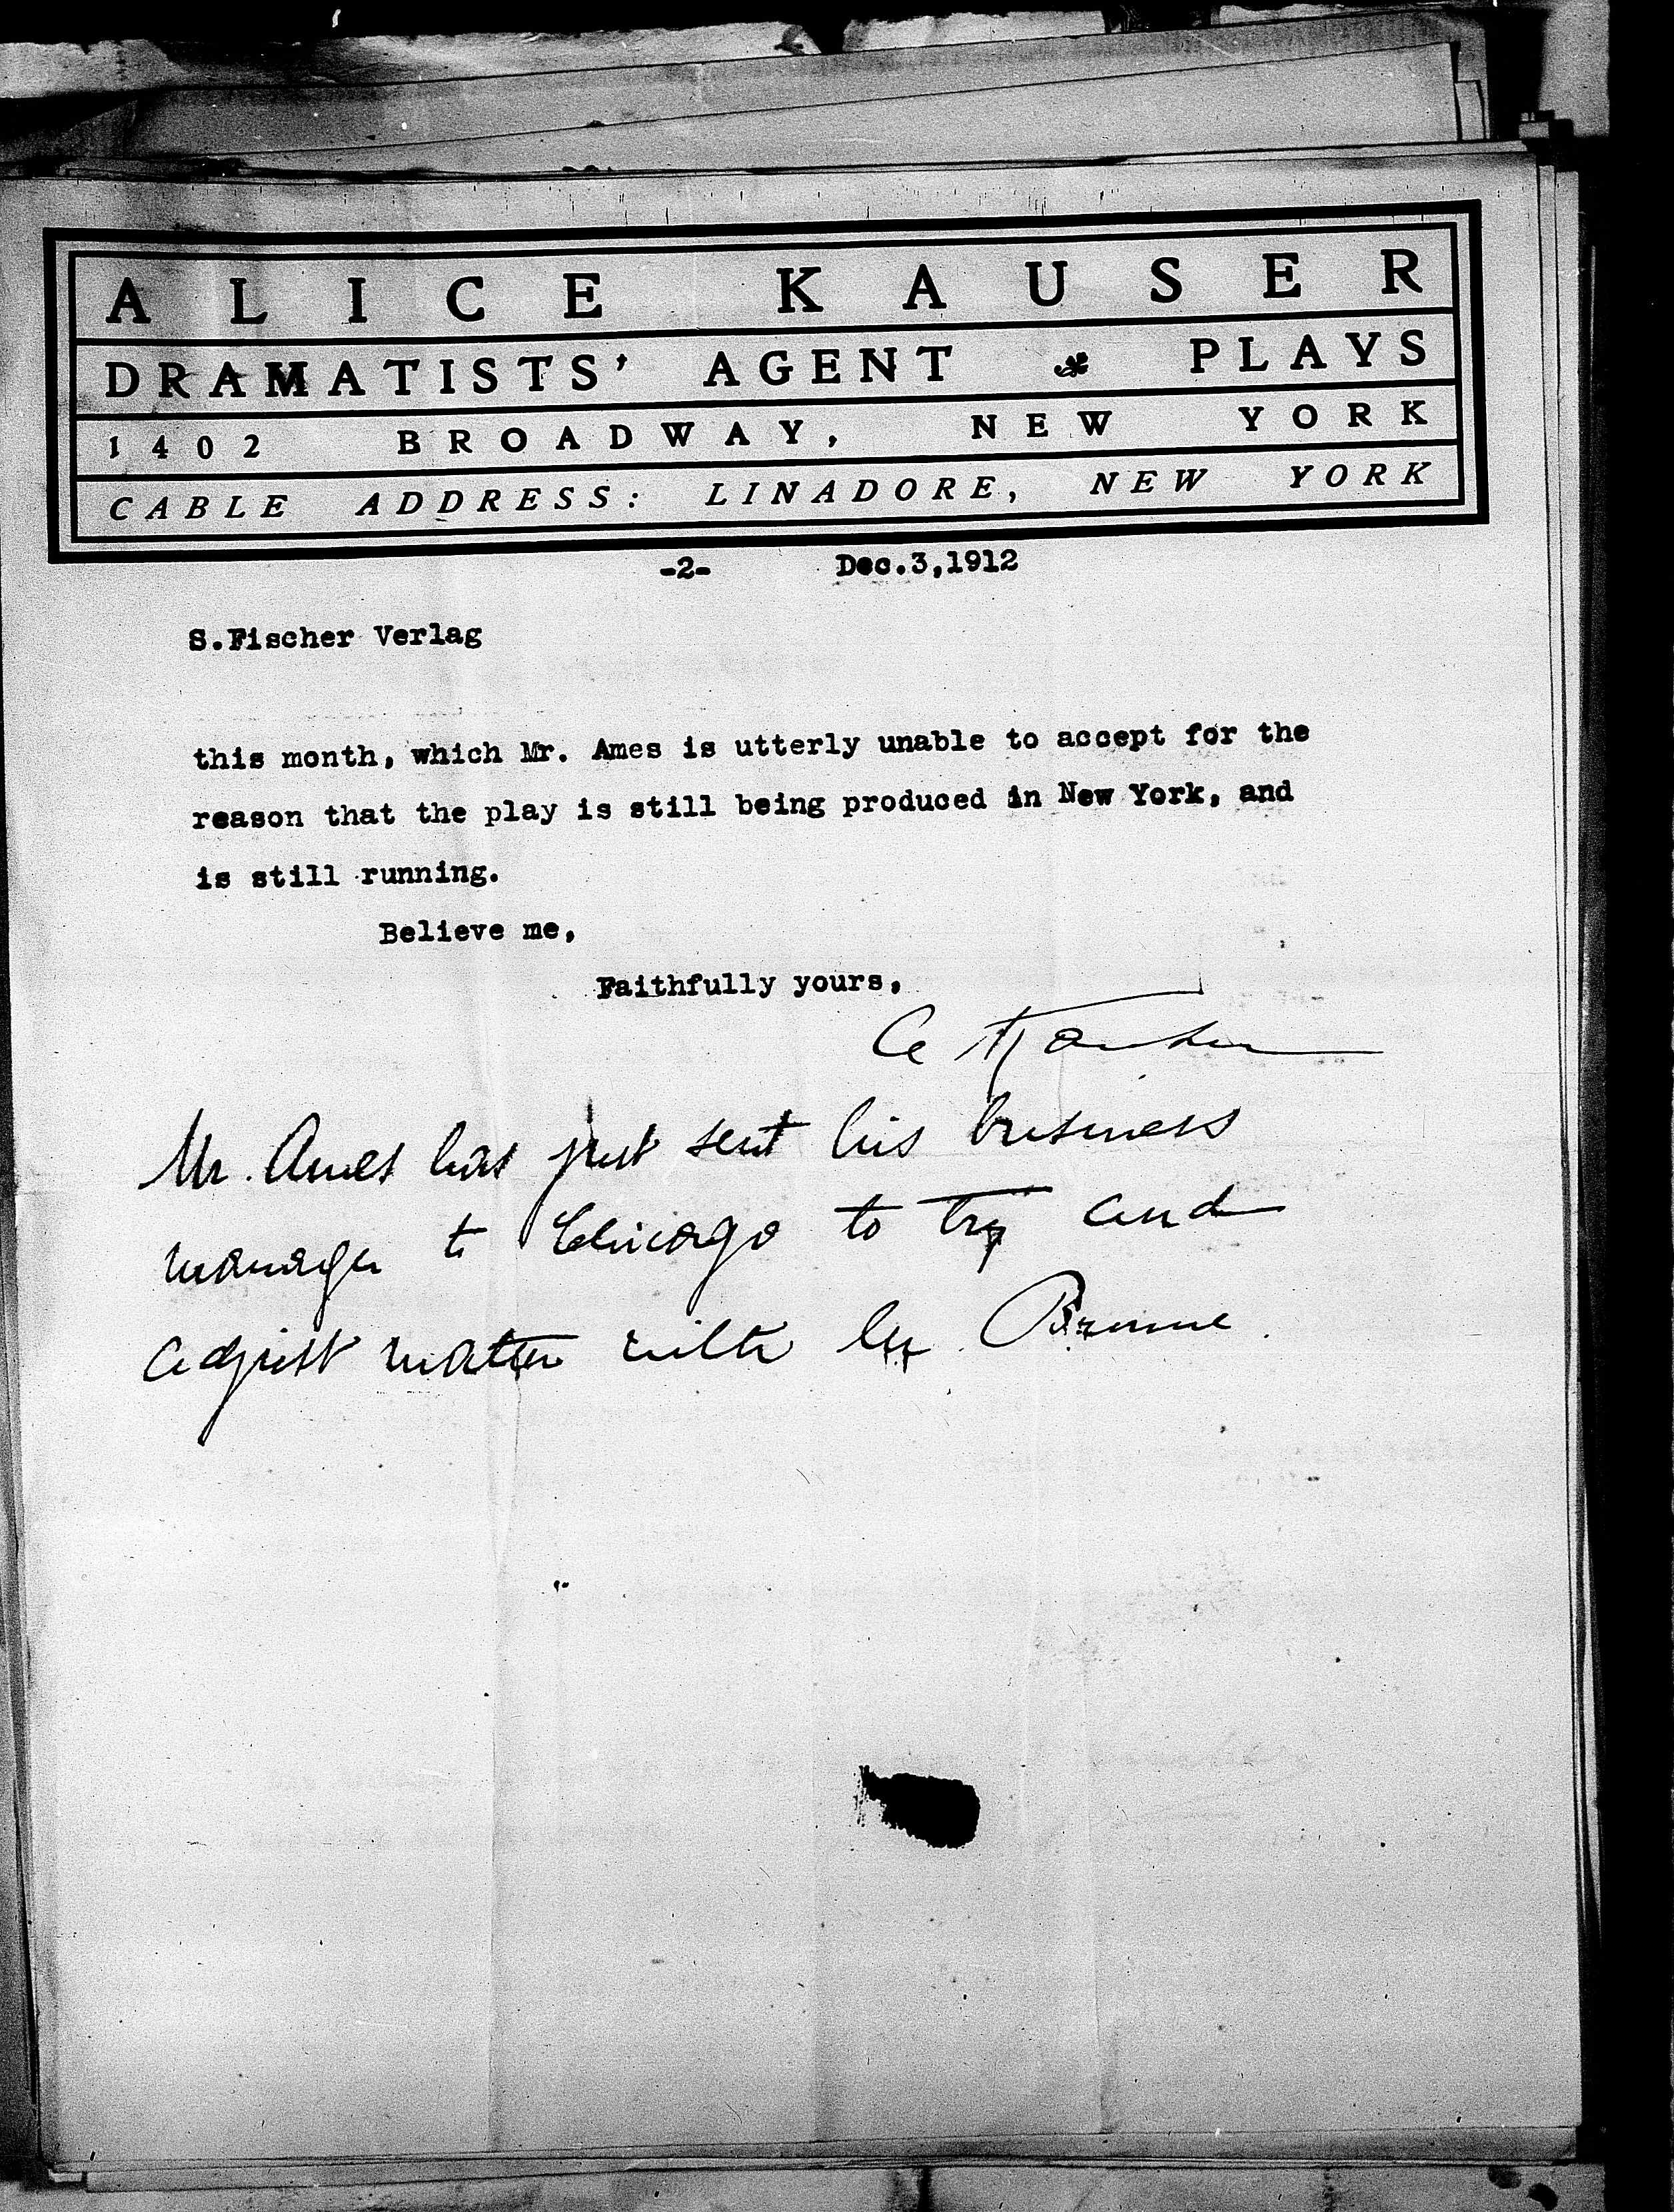 ALICE KAUSER
DRAMATISTS' AGENT PLAYS
1402 BROADWAY, NEW YORK
CABLE ADDRESS: LINADORE, NEW YORK
-2- Dec.3,1912
S.Fischer Verlag
this month, which Mr. Ames is utterly unable to accept for the
reason that the play is still being produced in New York, and
is still running.
Believe me,
Faithfully yours,
A Kauser
Mr. Ames has just sent his business
manager to Chicago to try and
adjust matters with